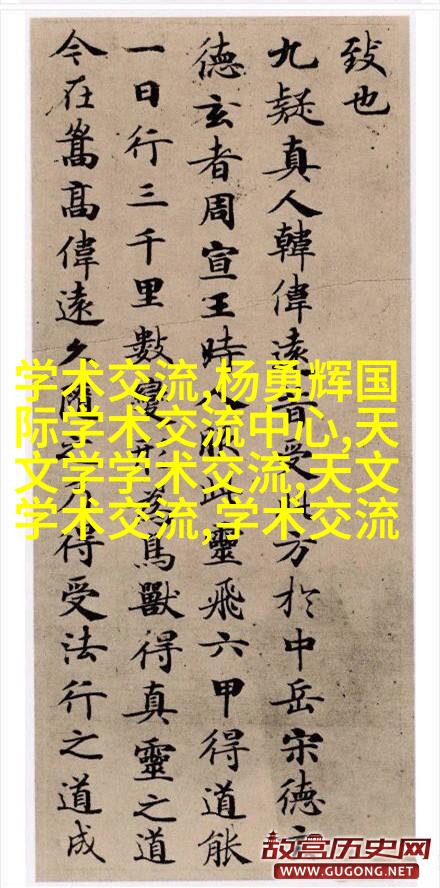 致也
九疑真人韓偉遠昔受此方於中岳宋德玄
德玄者周宣王時人服此靈飛六甲得道能
一日行三千里數變形為鳥獸得真靈之道
今在嵩高偉遠久隨之乃得受法行之道成
学术交流,杨勇辉国
际学术交流中心,天
文学学术交流,天文
学术交流,学术交流
故宫历史网
WWW.GUGONG.NET